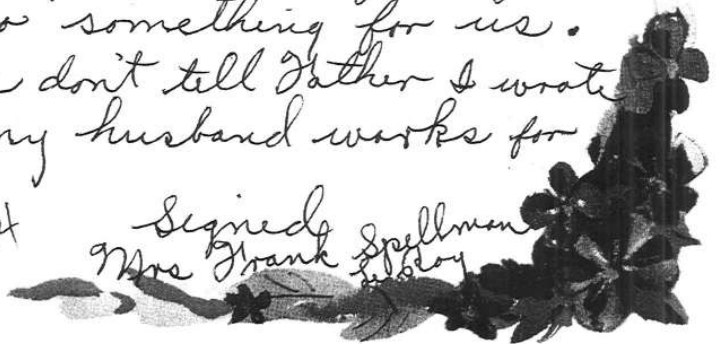 something for us.
don't tell Father I wrote
my husband works for
Signed
Mrs Frank Spellman
LeRoy